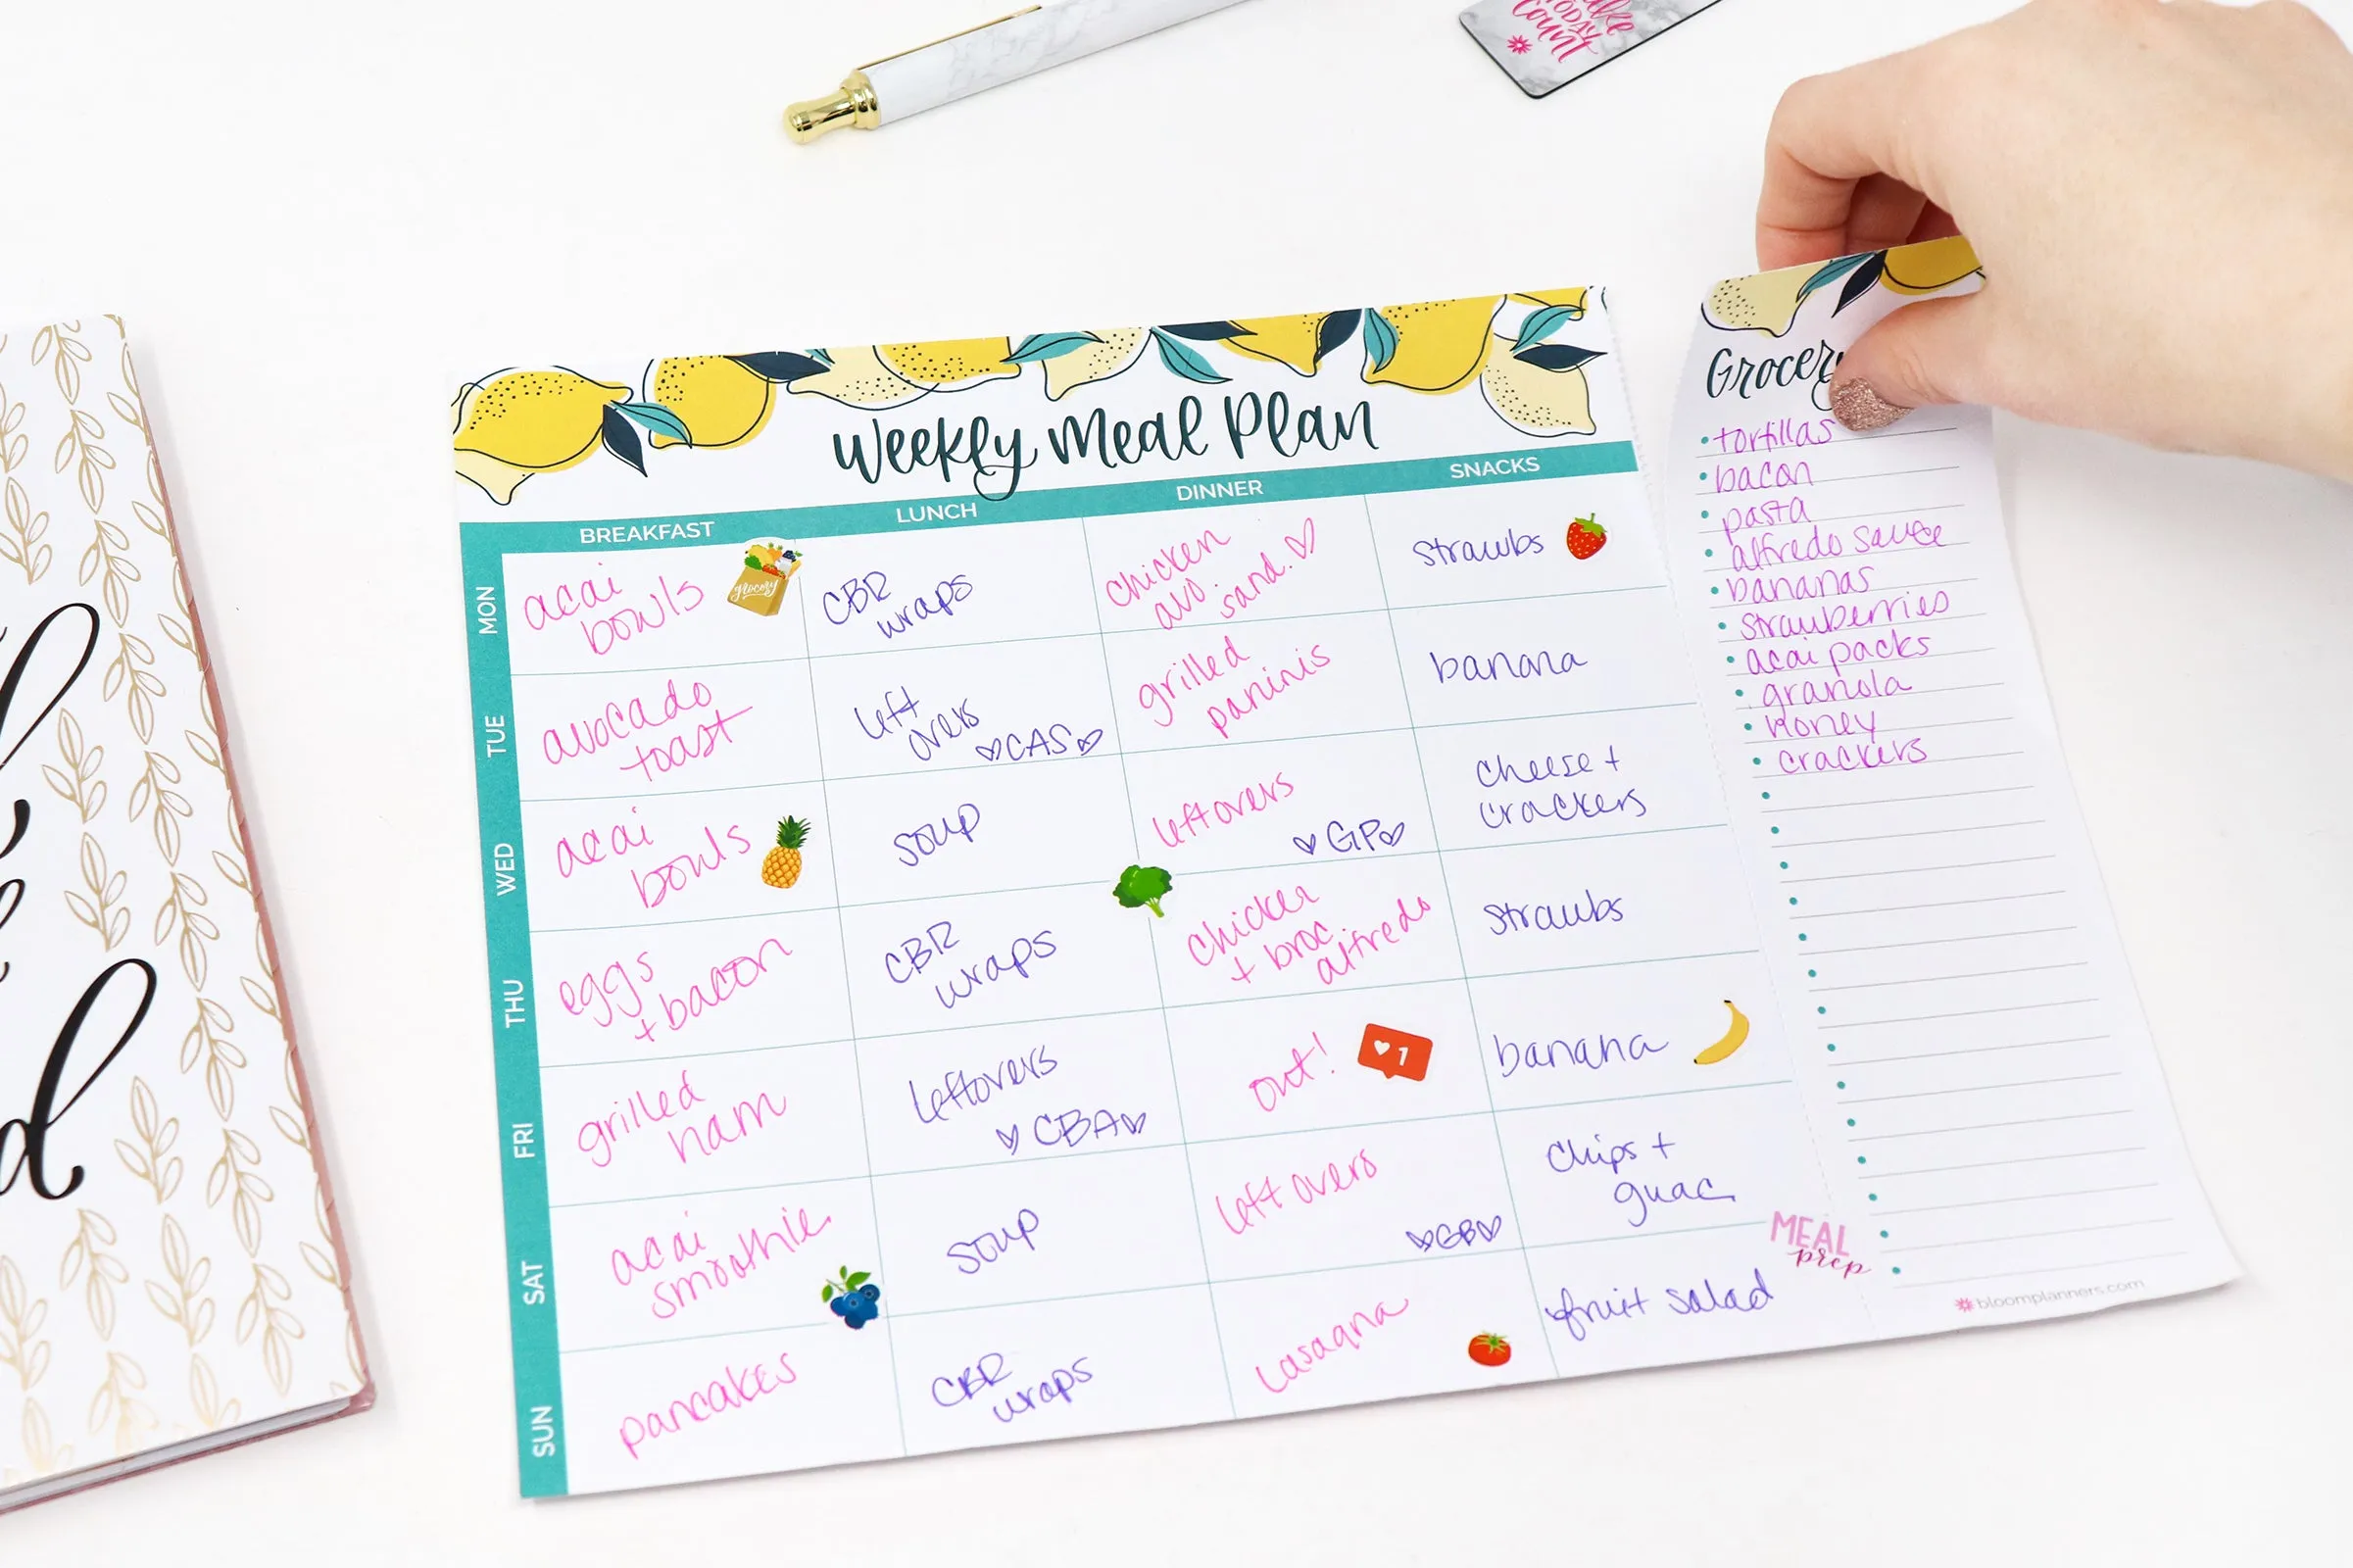 ake
TODAY
Count
Weekly Meal Plan
BREAKFAST LUNCH DINNER SNACKS
MON
acai
bowls
grocery
CBR
wraps
chicken
avo
sand.
strawbs
TUE
avocado
toast
left
overs
CAS
grilled
paninis
banana
WED
acai
bowls
soup
leftovers
GP
cheese +
crackers
THU
eggs
+ bacon
CBR
wraps
chicken
+ broc
alfredo
strawbs
FRI
grilled
ham
leftovers
CBA
out!
1
banana
SAT
acai
smoothie
soup
left overs
GB
chips +
guac
SUN
pancakes
CBR
wraps
lasagna
fruit salad
MEAL
prep
Grocery
tortillas
bacon
pasta
alfredo sauce
bananas
strawberries
acai packs
granola
honey
crackers
bloomplanners.com
d